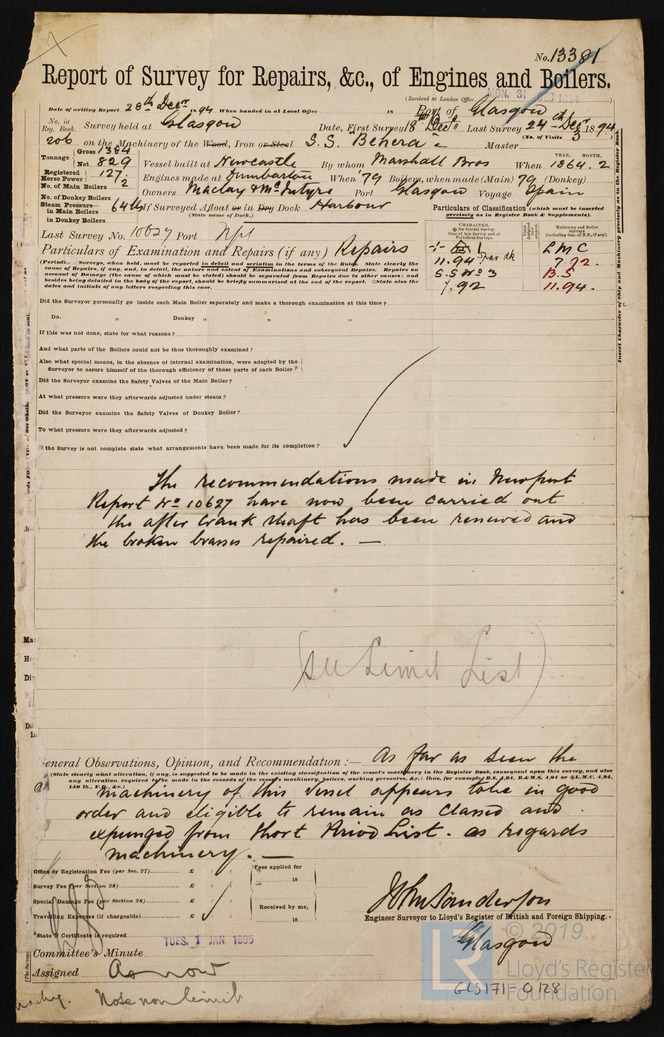 No. 13381
Report of Survey for Repairs, &c., of Engines and Boilers.
(Received at London Office
MON. 31 DEC 1894
Date of writing Report 28th Decr 1894 When handed in at Local Office 18 Port of Glasgow
No. in Reg. Book. Survey held at Glasgow Date, First Survey 18th Decr Last Survey 24th Decr 1894
(No. of Visits 3
206 on the Machinery of the Wood, Iron or Steel S.S. Behera Master
Tonnage Gross 1384 Net 829 Vessel built at Newcastle By whom Marshall Bros When 1864. 2
YEAR. MONTH.
Registered Horse Power 127 Engines made at Dumbarton When '79 Boilers, when made (Main) 79 (Donkey)
No. of Main Boilers 2
No. of Donkey Boilers Owners Maclay & McIntyre Port Glasgow Voyage Spain
Steam Pressure in Main Boilers 64 lb If Surveyed Afloat or in Dry Dock Harbour
(State name of Dock.)
in Donkey Boilers
Particulars of Classification (which must be inserted precisely as in Register Book & Supplements).
Last Survey No. 10627 Port Npt
Particulars of Examination and Repairs (if any) Repairs
11.94
S.S No 3
7.92
L M C
7.92
B.S
11.94.
Did the Surveyor personally go inside each Main Boiler separately and make a thorough examination at this time?
Do. " Donkey " " "
If this was not done, state for what reasons?
And what parts of the Boilers could not be thoroughly examined?
Also what special means, in the absence of internal examination, were adopted by the
Surveyor to assure himself of the thorough efficiency of those parts of each Boiler?
Did the Surveyor examine the Safety Valves of the Main Boiler?
At what pressure were they afterwards adjusted under steam?
Did the Surveyor examine the Safety Valves of Donkey Boiler?
To what pressure were they afterwards adjusted?
If the Survey is not complete state what arrangements have been made for its completion?
The recommendations made in Newport
Report No 10627 have now been carried out
the after crank shaft has been renewed and
the broken brasses repaired. —
(See Limit List)
General Observations, Opinion, and Recommendation :— As far as seen the
(State clearly what alteration, if any, is suggested to be made in the existing classification of the vessel's machinery in the Register Book, consequent upon this survey, and also
machinery of this vessel appears to be in good
order and eligible to remain as classed and
expunged from Short Period List. as regards
machinery. —
Office or Registration Fee (per Sec. 27) £ Fees applied for
Survey Fee (per Section 28) £ 18
Special Damage Fee (per Section 28) £ Received by me,
Travelling Expenses (if chargeable) £ 18
John Sanderson
Engineer Surveyor to Lloyd's Register of British and Foreign Shipping.
State if Certificate is required
Glasgow
Committee's Minute TUES. 1 JAN 1895
Assigned As now
Note non limit
© 2019
LR Lloyd's Register Foundation
GLS171-0128
Insert Character of Ship and Machinery precisely as in the Register Book.